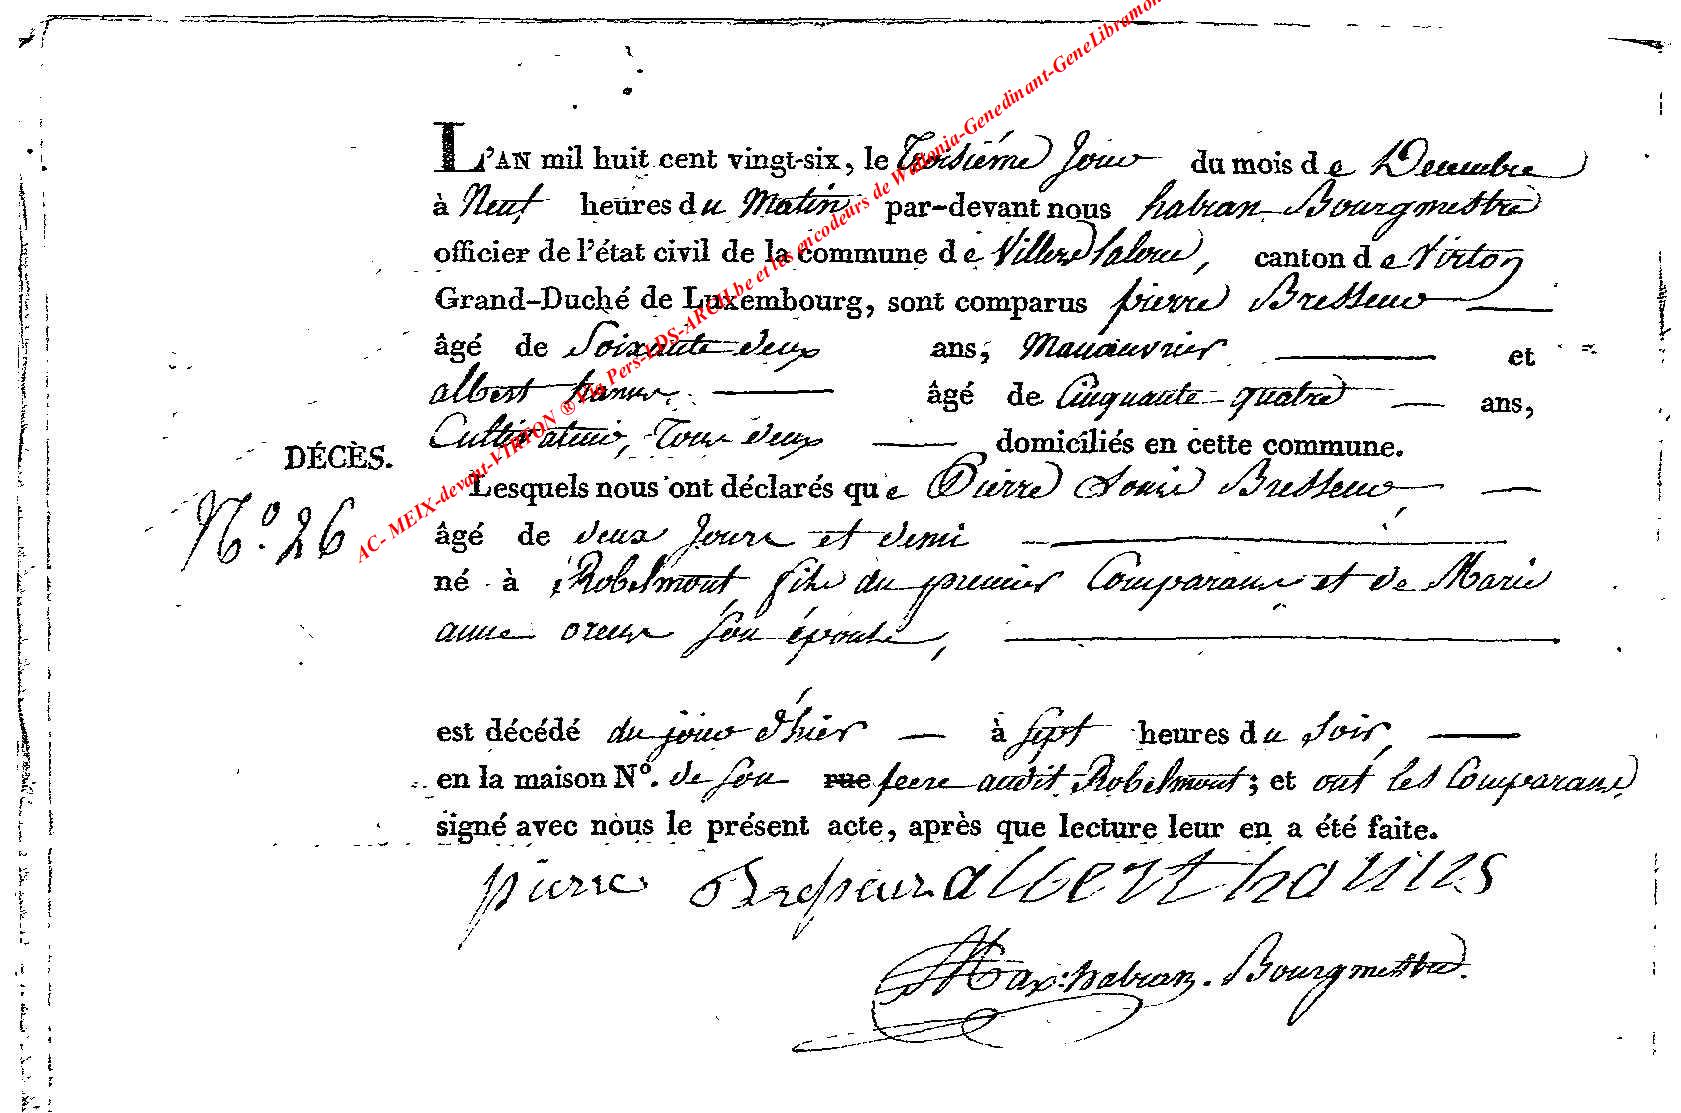 L'AN mil huit cent vingt-six, le Troisiéme Jour du mois de Decembre
à Neuf heures du Matin par-devant nous habran Bourgmestre
officier de l'état civil de la commune de Villers laloue, canton de Virton
Grand-Duché de Luxembourg, sont comparus pierre Bresseur
âgé de Soixante deux ans, Manœuvrier et
albert hanus âgé de Cinquante quatre ans,
Cultivateur, Tous deux domiciliés en cette commune.
DÉCÈS.
Lesquels nous ont déclarés que Pierre Louis Bresseur
N.º 26
âgé de deux Jours et demi
né à Robelmont fils du premier Comparant et de Marie
anne son épouse,
est décédé du jour d'hier à sept heures du Soir,
en la maison Nº. de son rue pere audit Robelmont; et ont les Comparans
signé avec nous le présent acte, après que lecture leur en a été faite.
pierre Bresseur albert hanus
Max: habran. Bourgmestre.
AC- MEIX-devant-VIRTON ® Via Pers-LDS-ARCH.be et les encodeurs de Wallonia-Genedinant-GeneLibramon